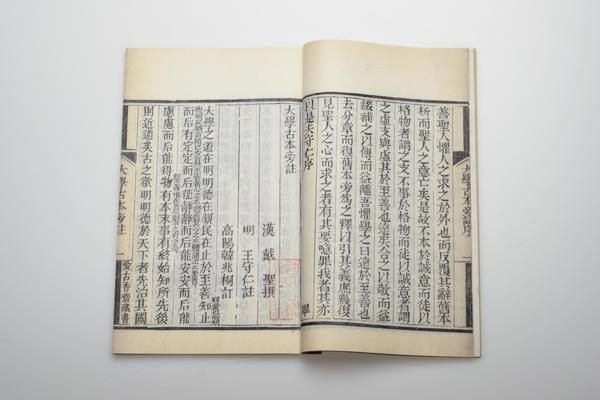 大學古本旁註序
善聖人懼人之求之於外也而反覆其辭舊本
析而聖人之意亡矣是故不本於誠意而徒以
格物者謂之支不事於格物而徒以誠意者謂
之虛支與虛其於至善也遠矣合之以敬而益
綴補之以傳而益離吾懼學之日遠於至善也
去分章而復舊本旁為之釋以引其義庶幾復
見聖人之心而求之者有其要噫罪我者其亦
以是夫守仁序 畢
大學古本旁註
漢 戴聖撰
明 王守仁註
高陽韓兆桐訂
大學之道在明明德在親民在止於至善知止
而后有定定而后能靜靜而后能安安而后能
慮慮而后能得物有本末事有終始知所先後
則近道矣古之欲明明德於天下者先治其國
大學古本旁註 一 愛古香齋藏書